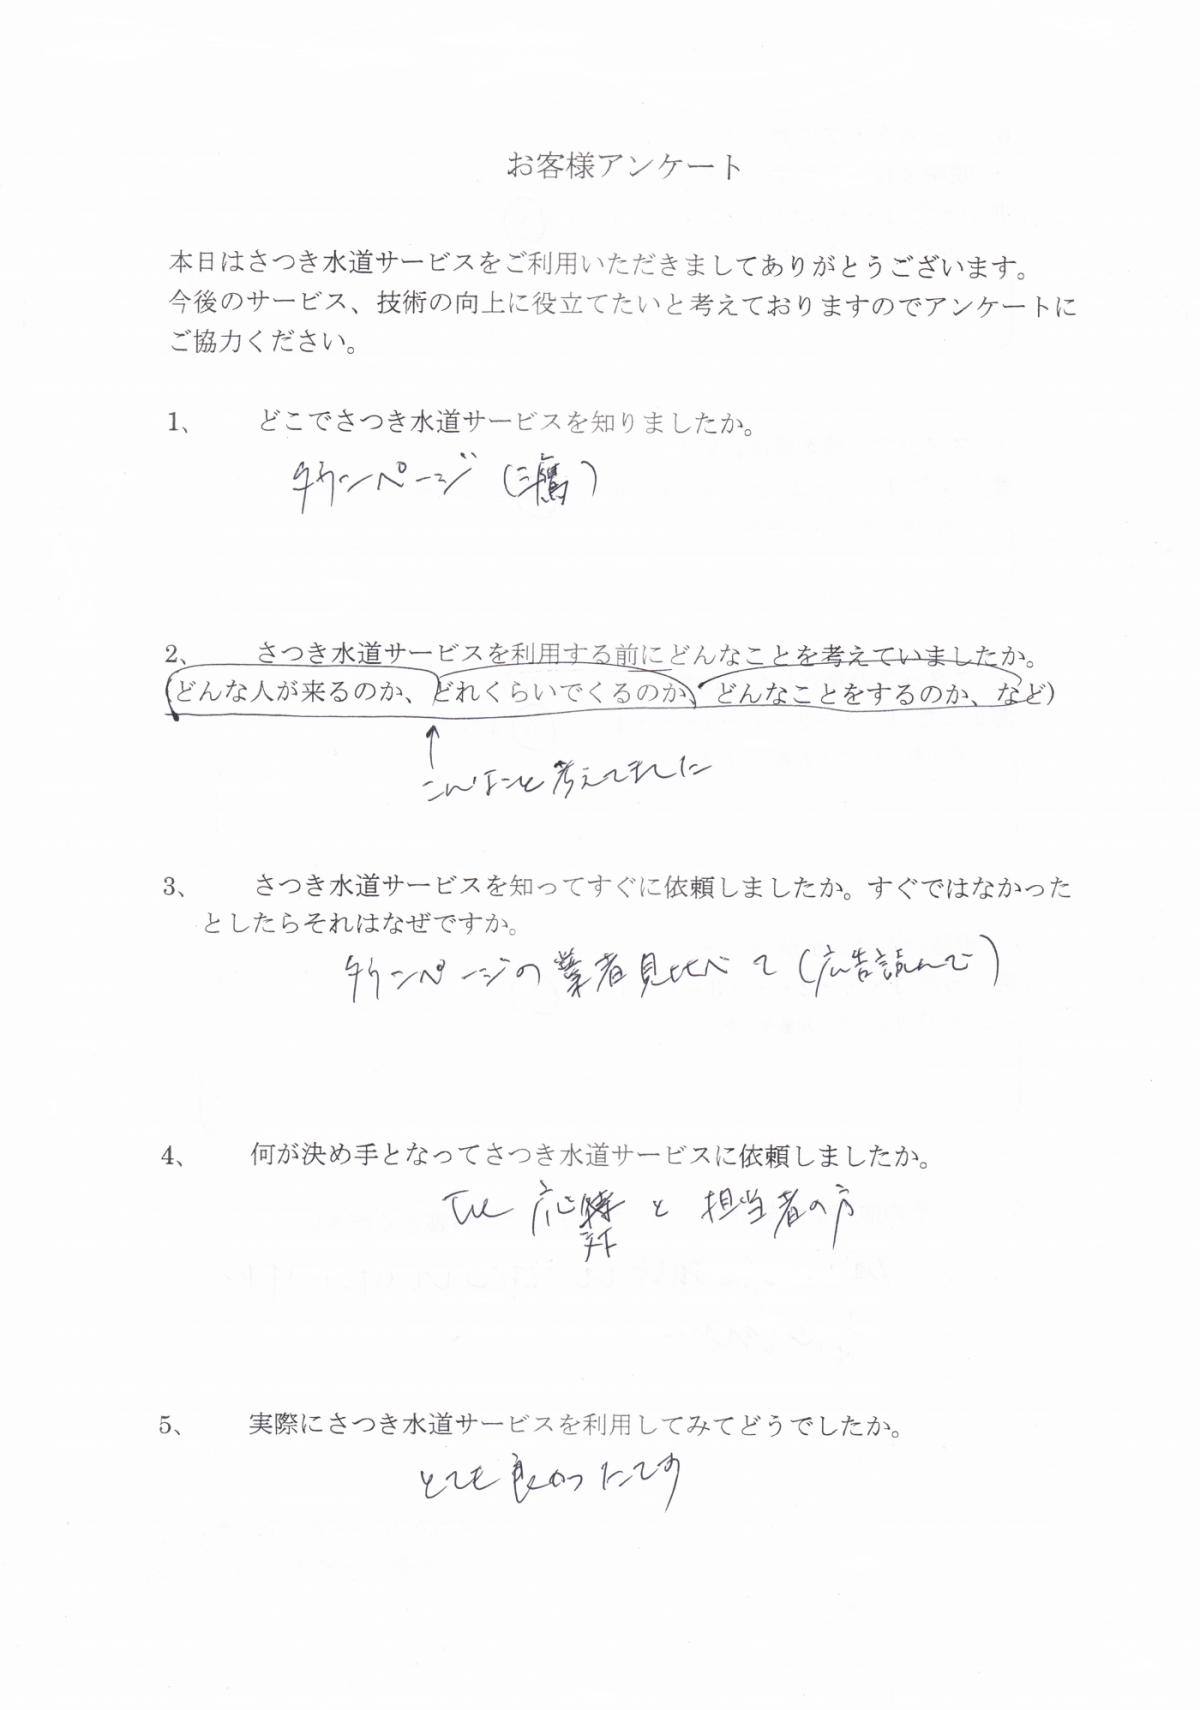 お客様アンケート
本日はさつき水道サービスをご利用いただきましてありがとうございます。
今後のサービス、技術の向上に役立てたいと考えておりますのでアンケートに
ご協力ください。
1、 どこでさつき水道サービスを知りましたか。
タウンページ (三鷹)
2、 さつき水道サービスを利用する前にどんなことを考えていましたか。
(どんな人が来るのか、どれくらいでくるのか、どんなことをするのか、など)
↑
こんなこと考えてました
3、 さつき水道サービスを知ってすぐに依頼しましたか。すぐではなかった
としたらそれはなぜですか。
タウンページの業者見比べて (広告読んで)
4、 何が決め手となってさつき水道サービスに依頼しましたか。
TEL 応対 と 担当者の方
5、 実際にさつき水道サービスを利用してみてどうでしたか。
とても良かったです